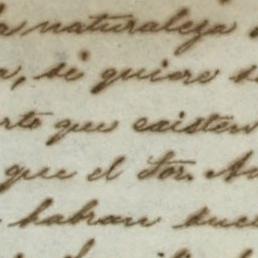 a naturaleza
a, si quiere s
rte que existen
que el Sor. An
habran suce